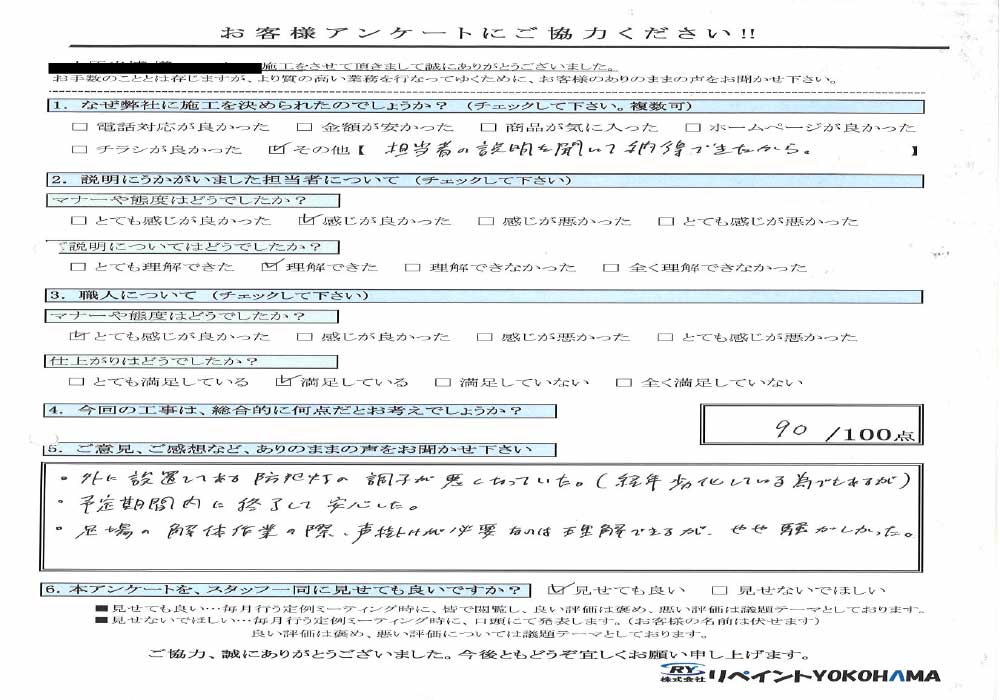 お客様アンケートにご協力ください!!
施工をさせて頂きまして誠にありがとうございました。
お手数のこととは存じますが、より質の高い業務を行なってゆくために、お客様のありのままの声をお聞かせ下さい。
1. なぜ弊社に施工を決められたのでしょうか? (チェックして下さい。複数可)
□ 電話対応が良かった □ 金額が安かった □ 商品が気に入った □ ホームページが良かった
□ チラシが良かった ☑ その他【 担当者の説明を聞いて納得できたから。 】
2. 説明にうかがいました担当者について (チェックして下さい)
マナーや態度はどうでしたか?
□ とても感じが良かった ☑ 感じが良かった □ 感じが悪かった □ とても感じが悪かった
ご説明についてはどうでしたか?
□ とても理解できた ☑ 理解できた □ 理解できなかった □ 全く理解できなかった
3. 職人について (チェックして下さい)
マナーや態度はどうでしたか?
☑ とても感じが良かった □ 感じが良かった □ 感じが悪かった □ とても感じが悪かった
仕上がりはどうでしたか?
□ とても満足している ☑ 満足している □ 満足していない □ 全く満足していない
4. 今回の工事は、総合的に何点だとお考えでしょうか?
90 /100点
5. ご意見、ご感想など、ありのままの声をお聞かせ下さい
・外に設置してある防犯灯の調子が悪くなっていた。(経年劣化している為でもあるが)
・予定期間内に終了して安心した。
・足場の解体作業の際、声掛けが必要なのは理解できるが、やや騒がしかった。
6. 本アンケートを、スタッフ一同に見せても良いですか? ☑ 見せても良い □ 見せないでほしい
■見せても良い…毎月行う定例ミーティング時に、皆で閲覧し、良い評価は褒め、悪い評価は議題テーマとしております。
■見せないでほしい…毎月行う定例ミーティング時に、口頭にて発表します。(お客様の名前は伏せます)
良い評価は褒め、悪い評価については議題テーマとしております。
ご協力、誠にありがとうございました。今後ともどうぞ宜しくお願い申し上げます。
RY 株式会社 リペイントYOKOHAMA